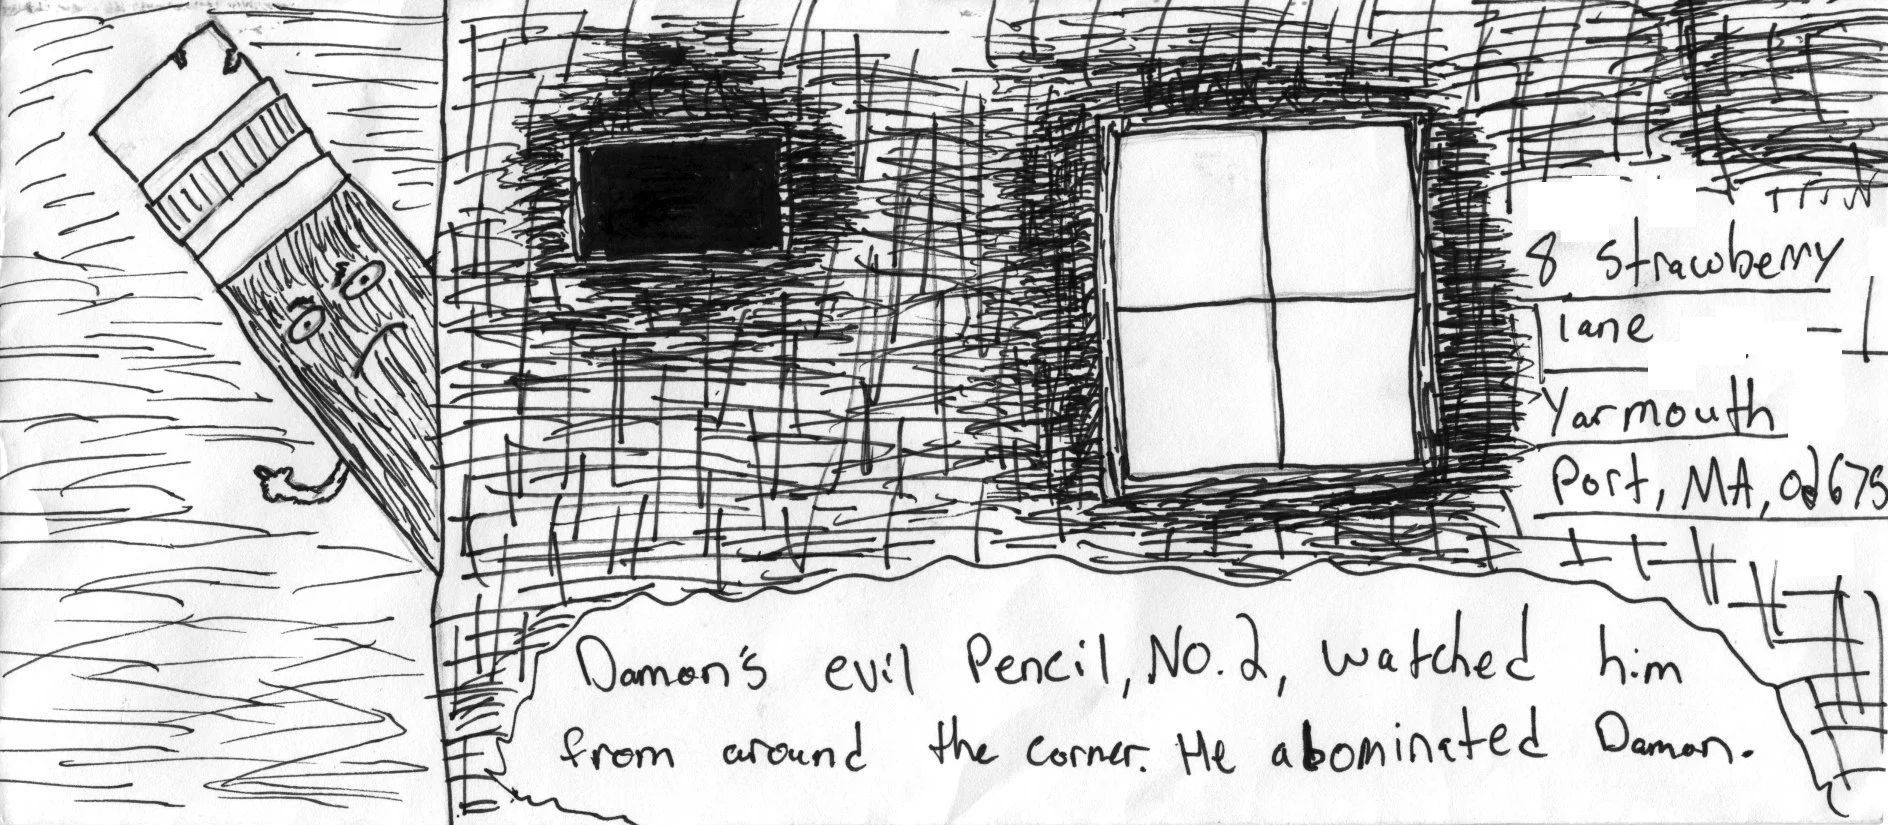 8 Strawberry
lane
Yarmouth
Port, MA, 02675
Damon's evil Pencil, NO. 2, watched him
from around the corner. He abominated Damon.